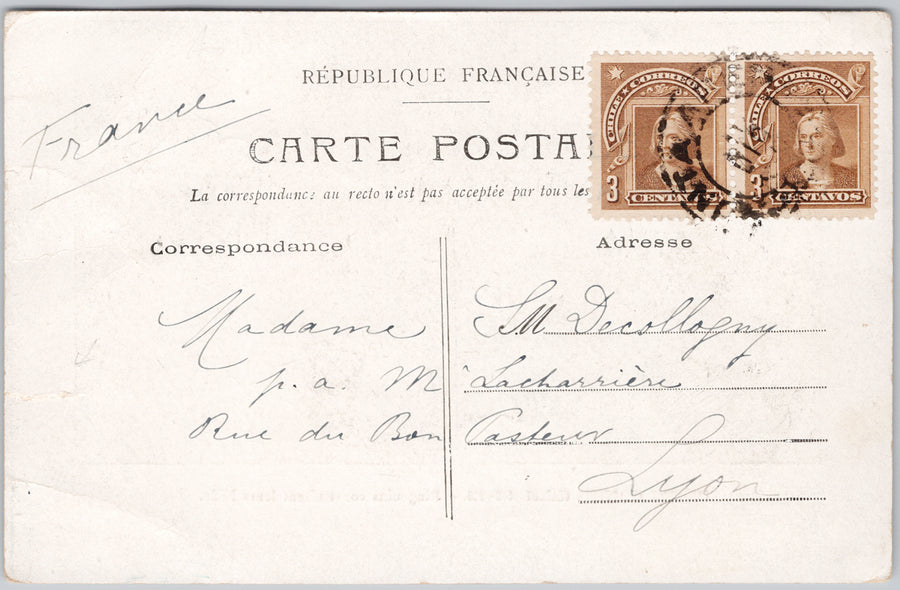 RÉPUBLIQUE FRANÇAISE
France
CARTE POSTA
La correspondance au recto n'est pas acceptée par tous les
CHILE CORREOS
3 CENTAVOS
CHILE CORREOS
3 CENTAVOS
Correspondance
Adresse
Madame SM Decollogny
p. a. M Lacharrière
Rue du Bon Pasteur
Lyon